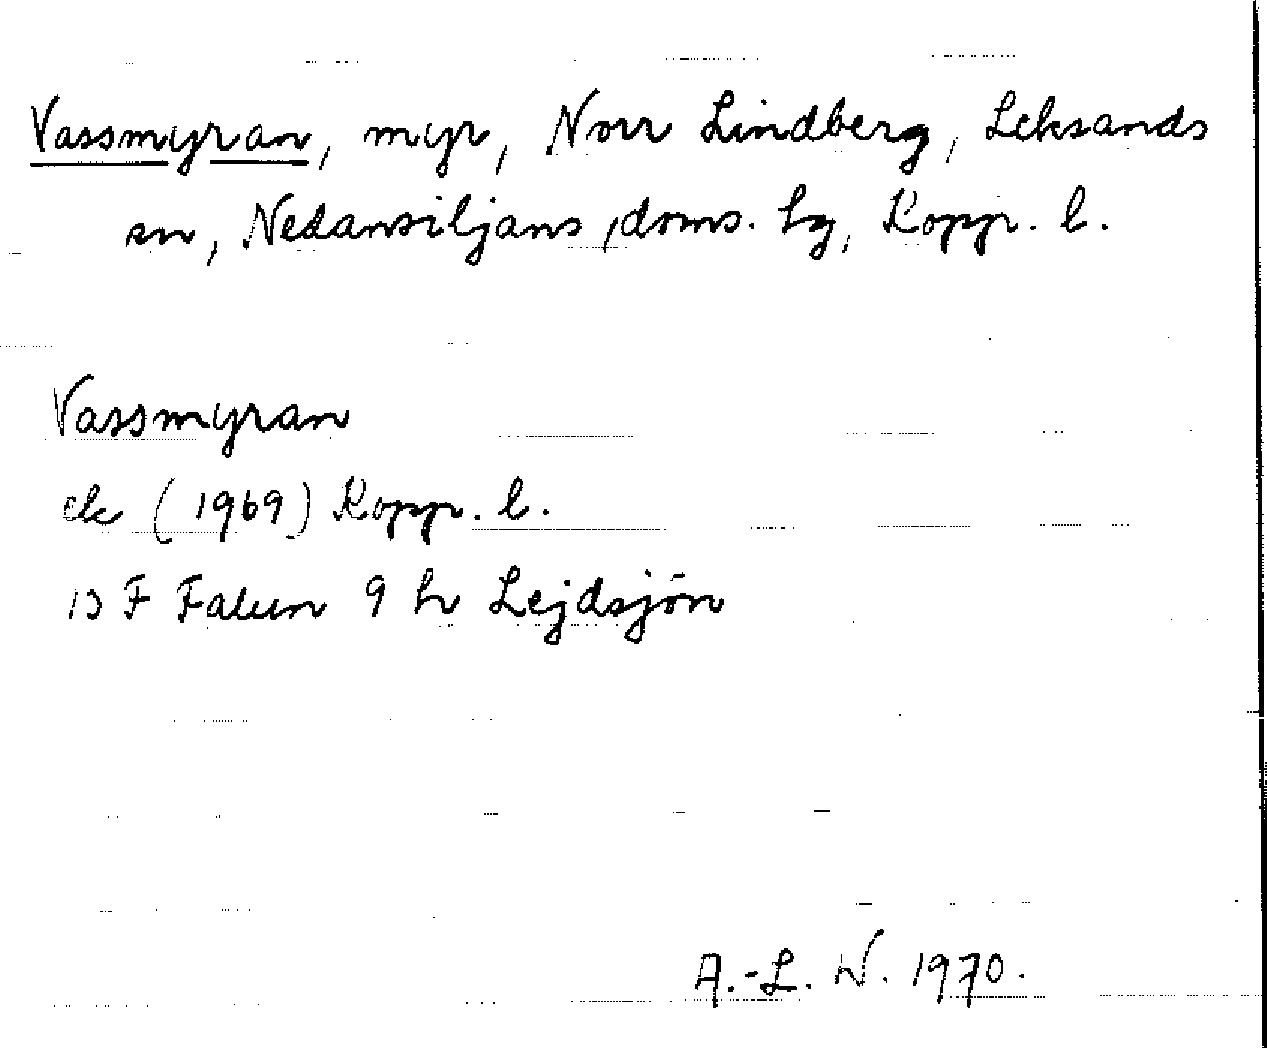 Vassmyran, myr, Norr Lindberg, Leksands
sn, Nedansiljans doms. hg, Kopp. l.
Vassmyran
ek (1969) Kopp. l.
13 F Falun 9 h Lejdsjön
A.-L. W. 1970.